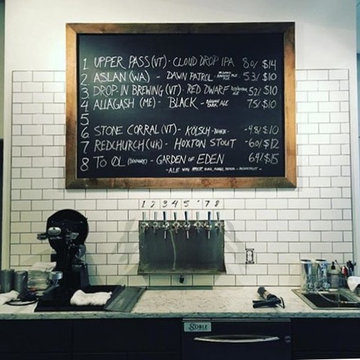 1 UPPER PASS (VT) - CLOUD DROP IPA 8.0/$14
2 ASLAN (WA) - DAWN PATROL - ALE 5.3/$10
3 DROP-IN BREWING (VT) - RED DWARF 5.2/$10
4 ALLAGASH (ME) - BLACK - ALE 7.5/$10
5
6 STONE CORRAL (VT) - KÖLSCH - 4.8/$10
7 REDCHURCH (UK) - HOXTON STOUT - 6.0/$12
8 TO ØL (DENMARK) - GARDEN OF EDEN 6.4/$15
- ALE WITH
1 2 3 4 5 6 7 8